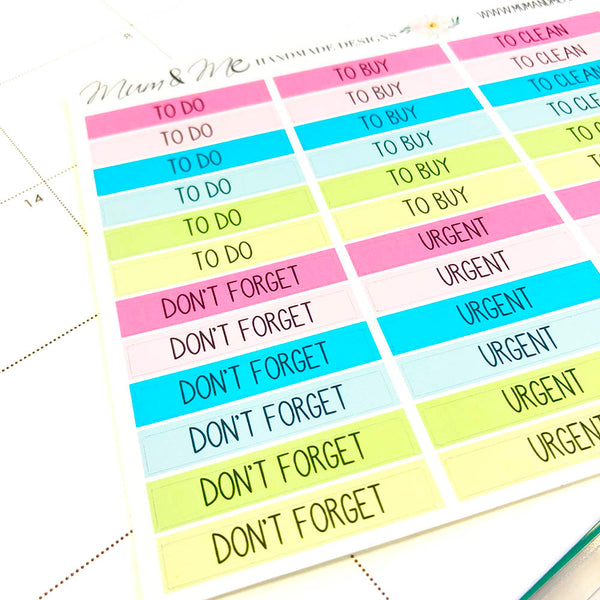 Mum & Me HANDMADE DESIGNS
TO DO
TO DO
TO DO
TO DO
TO DO
TO DO
DON'T FORGET
DON'T FORGET
DON'T FORGET
DON'T FORGET
DON'T FORGET
DON'T FORGET
TO BUY
TO BUY
TO BUY
TO BUY
TO BUY
TO BUY
URGENT
URGENT
URGENT
URGENT
URGENT
URGENT
TO CLEAN
TO CLEAN
TO CLEAN
TO CLE
TO C
TO
8
14